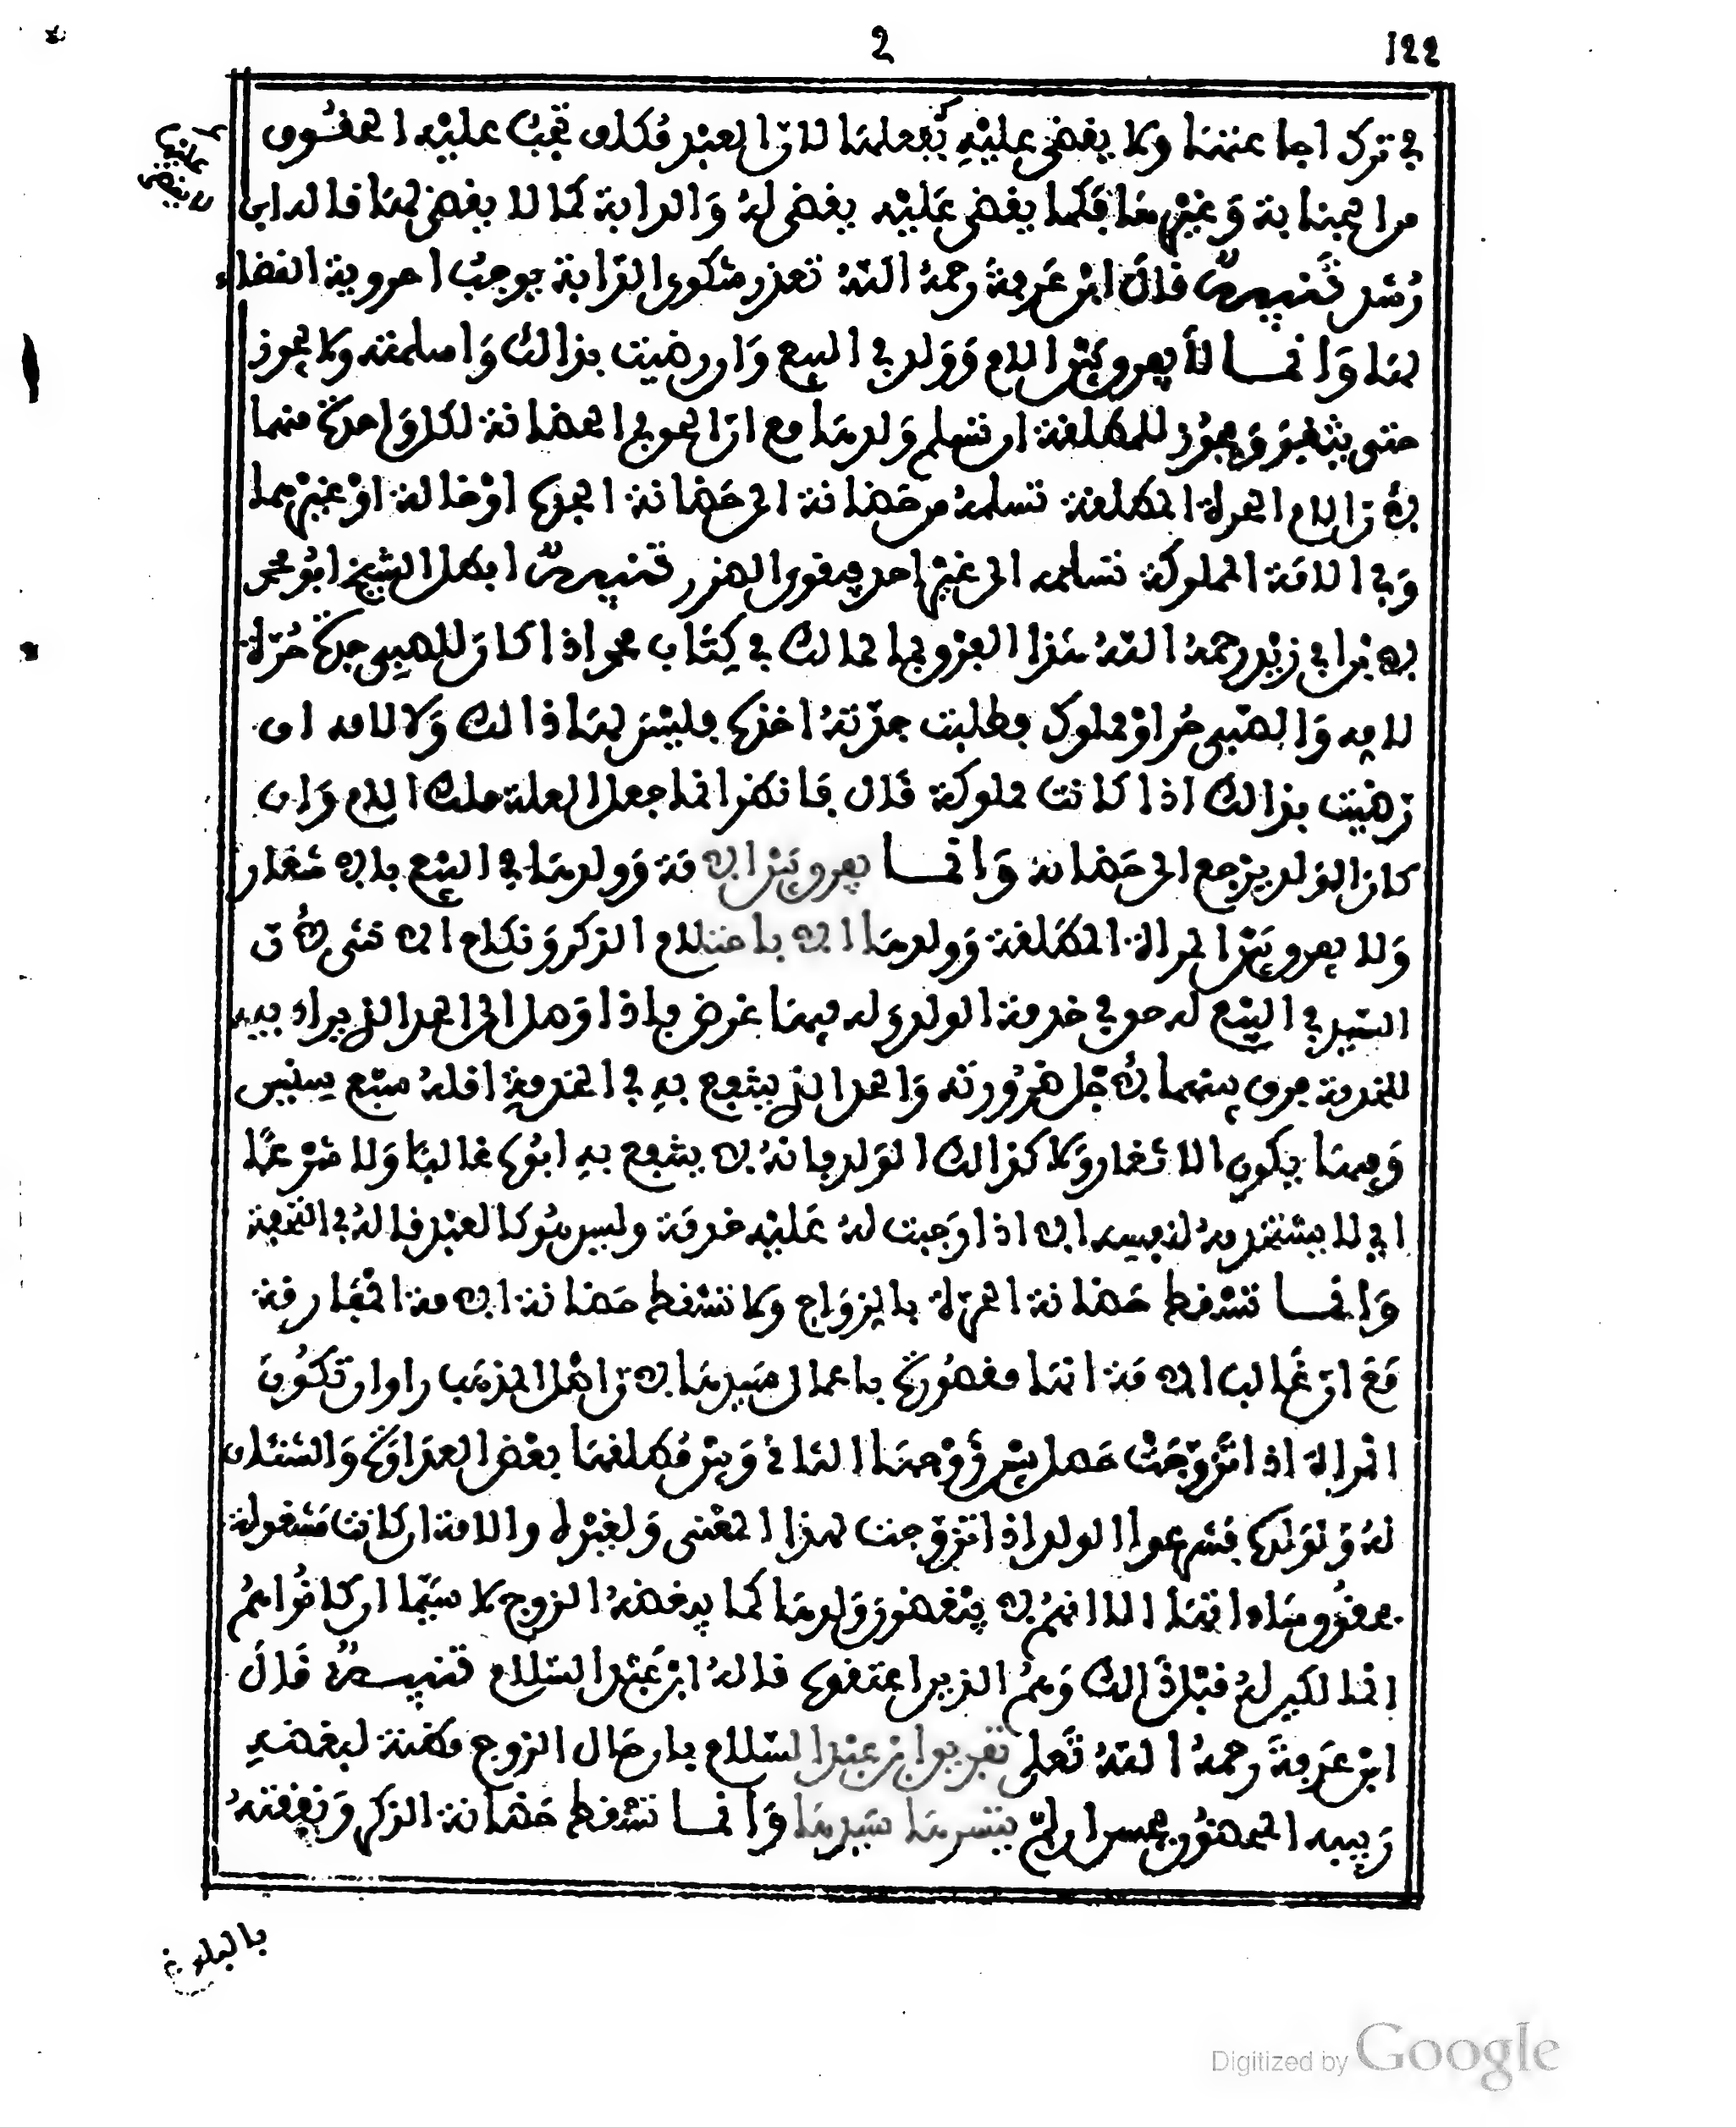 2
122
في ترك اجاعتها ولا يفضى عليه بعلفها لان العبد مكلف تجب عليه الحقوق
من الجناية وغيرها فكما يفضى عليه يفضى له والدابة كما لا يفضى لها قاله ابن
رشد تنبيه قال ابن عرفة رحمه الله تعذر شكوى الدابة يوجب احروية القضاء
لها وانما لا يفرق بين الام وولد في البيع وان رضيت بذالك واسلمته ولا يجوز
حتى يثغر ويجوز للمطلقة ان تسلم ولدها مع ان الحق في الحضانة لكل واحدة منهما
لان الام الحرة المطلقة تسلمه من حضانة الى حضانة الجدة او خالة او غيرهما
وفي الامة المملوكة تسلمه الى غير احد فيقوى الضرر تنبيه ابطل الشيخ ابو محمد
بن ابي زيد رحمه الله هذا الفرق بما لمالك في كتاب محمد اذا كان للصبي جدة حرة
لامه والصبي حر او مملوك فطلبت جدته اخذه فليس لها ذالك ولا لامه ان
رضيت بذالك اذا كانت مملوكة قال فانظر انما جعل العلة ملك الام وان
كان الولد يرجع الى حضانة وانما يفرق بين الامة وولدها في البيع بالاثغار
ولا يفرق بين المراة المطلقة وولدها الا باحتلام الذكر ونكاح الانثى لان
السيد في البيع له حق في خدمة الولد وله فيها غرض فاذا وصل الى الحد الذي يراد فيه
للخدمة فرق بينهما لاجل ضرورته والحد الذي ينتفع به في الخدمة اقله سبع سنين
وفيها يكون الاثغار ولا كذالك الولد فانه لا ينتفع به ابوه غالبا ولا شرعا
اي لا يستخدمه لنفسه الا اذا وجبت له عليه خدمة وليس هو كالعبد قاله في التحفة
وانما تسقط حضانة الحرة بالزواج ولا تسقط حضانة الامة المفارقة
مع ان غالب الامة انها مقصورة باعمال سيدها لان اهل المذهب راوا ان تكون
المراة اذا تزوجت حصل بين زوجها الثاني وبين مطلقها بعض العداوة والشنئان
له ولولده فشرعوا الولد اذا تزوجت لهذا المعنى ولغيره والامة ان كانت مشغولة
بحقوق ساداتها الا انهم لا يبغضون ولدها كما يبغضه الزوج لا سيما ان كانوا هم
المالكين له قبل ذالك وهم الذين اعتقوه قاله ابن عبد السلام تنبيه قال
ابن عرفة رحمه الله تعلى تفريق ابن عبد السلام بان حال الزوج مظنة لبغضه
ربيبه المحضون يحسن ان لم يتسرها سيدها وانما تسقط حضانة الذكر ونفقته
بالبلوغ